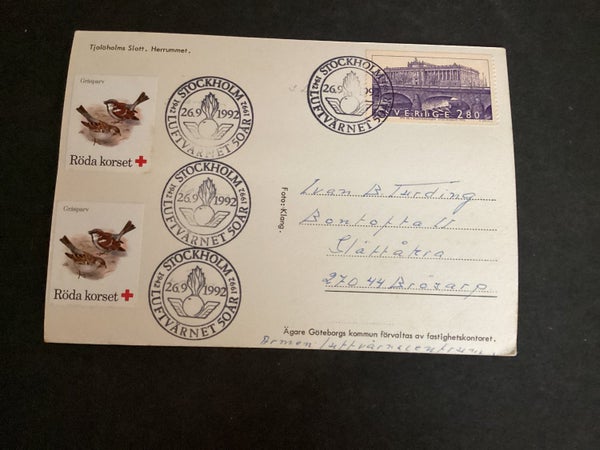 Tjolöholms Slott. Herrummet.
Gråsparv
Röda korset
Gråsparv
Röda korset
STOCKHOLM
1942 26.9 1992 1992
LUFTVÄRNET 50 ÅR
STOCKHOLM
1942 26.9 1992 1992
LUFTVÄRNET 50 ÅR
STOCKHOLM
1942 26.9 1992 1992
LUFTVÄRNET 50 ÅR
STOCKHOLM
1942 26.9
LUFTVÄRNET 50 ÅR
SVERIGE 2.80
Foto: Klang.
Ivan B Turding
Bontofta 11
Slättåkra
270 44 Brösarp
Ägare Göteborgs kommun förvaltas av fastighetskontoret.
luftvärnscentrum